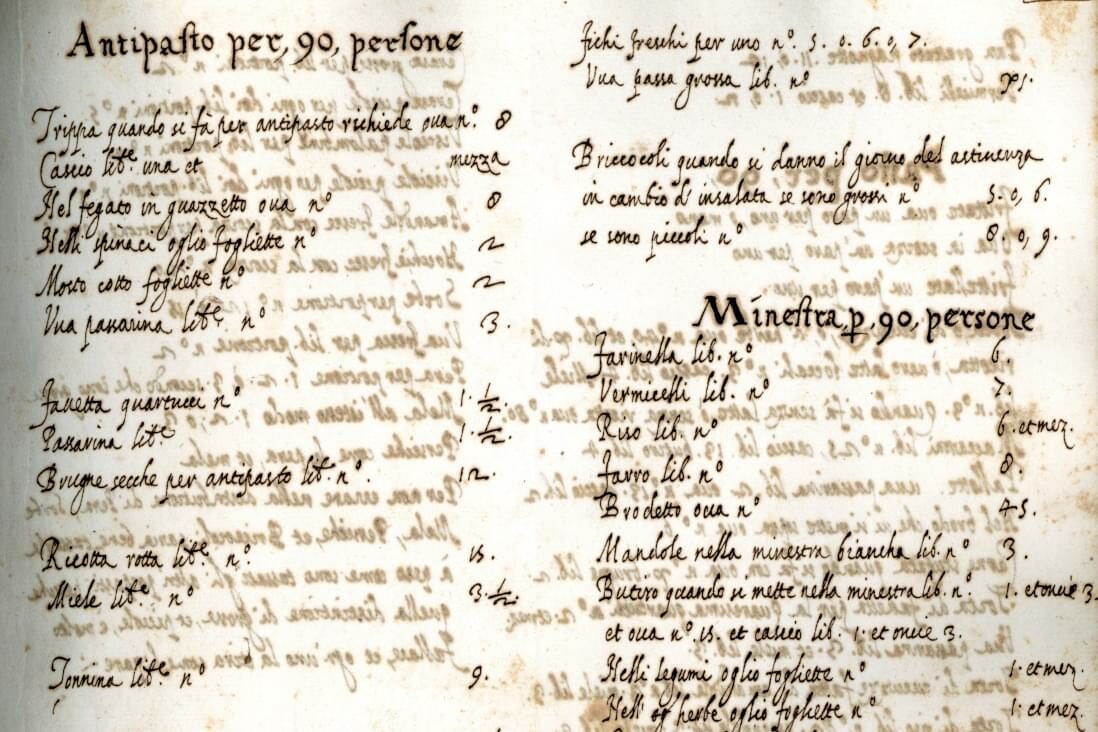 Antipasto per, 90, persone
Trippa quando si fà per antipasto richiede oua n.º 8
Cascio libᵉ. una et mezza
Nel fegato in guazzetto oua nº 8
Nelli spinaci oglio fogliette nº 2
Mosto cotto fogliette nº 2
Vua passarina libᵉ. nº 3.
Fauetta quartucci nº 1. ½.
Passarina libᵉ 1. ½.
Brugne secche per antipasto lib. nº. 12.
Ricotta rotta libᵉ. nº. 15.
Miele libᵉ. nº 3. ½.
Tonnina libᵉ. nº 9.
fichi freschi per uno nº. 5. o. 6. o, 7.
Vua passa grossa lib. nº
Briccocoli quando si danno il giorno del astinenza
in cambio d'insalata se sono grossi nº 5. o, 6.
se sono piccoli nº 8. o, 9.
Minestra, p, 90, persone
Farinella lib. nº 6.
Vermicelli lib. nº 7.
Riso lib. nº 6. et mez.
Farro lib. nº 8.
Brodetto oua nº 45.
Mandole nella minestra biancha lib. nº 3.
Butiro quando si mette nella minestra lib. nº 1. et oncie 3.
et oua nº. 15. et cascio lib. 1. et oncie 3.
Nelli legumi oglio fogliette nº 1. et mez.
Nell herbe oglio fogliette nº 1. et mez.